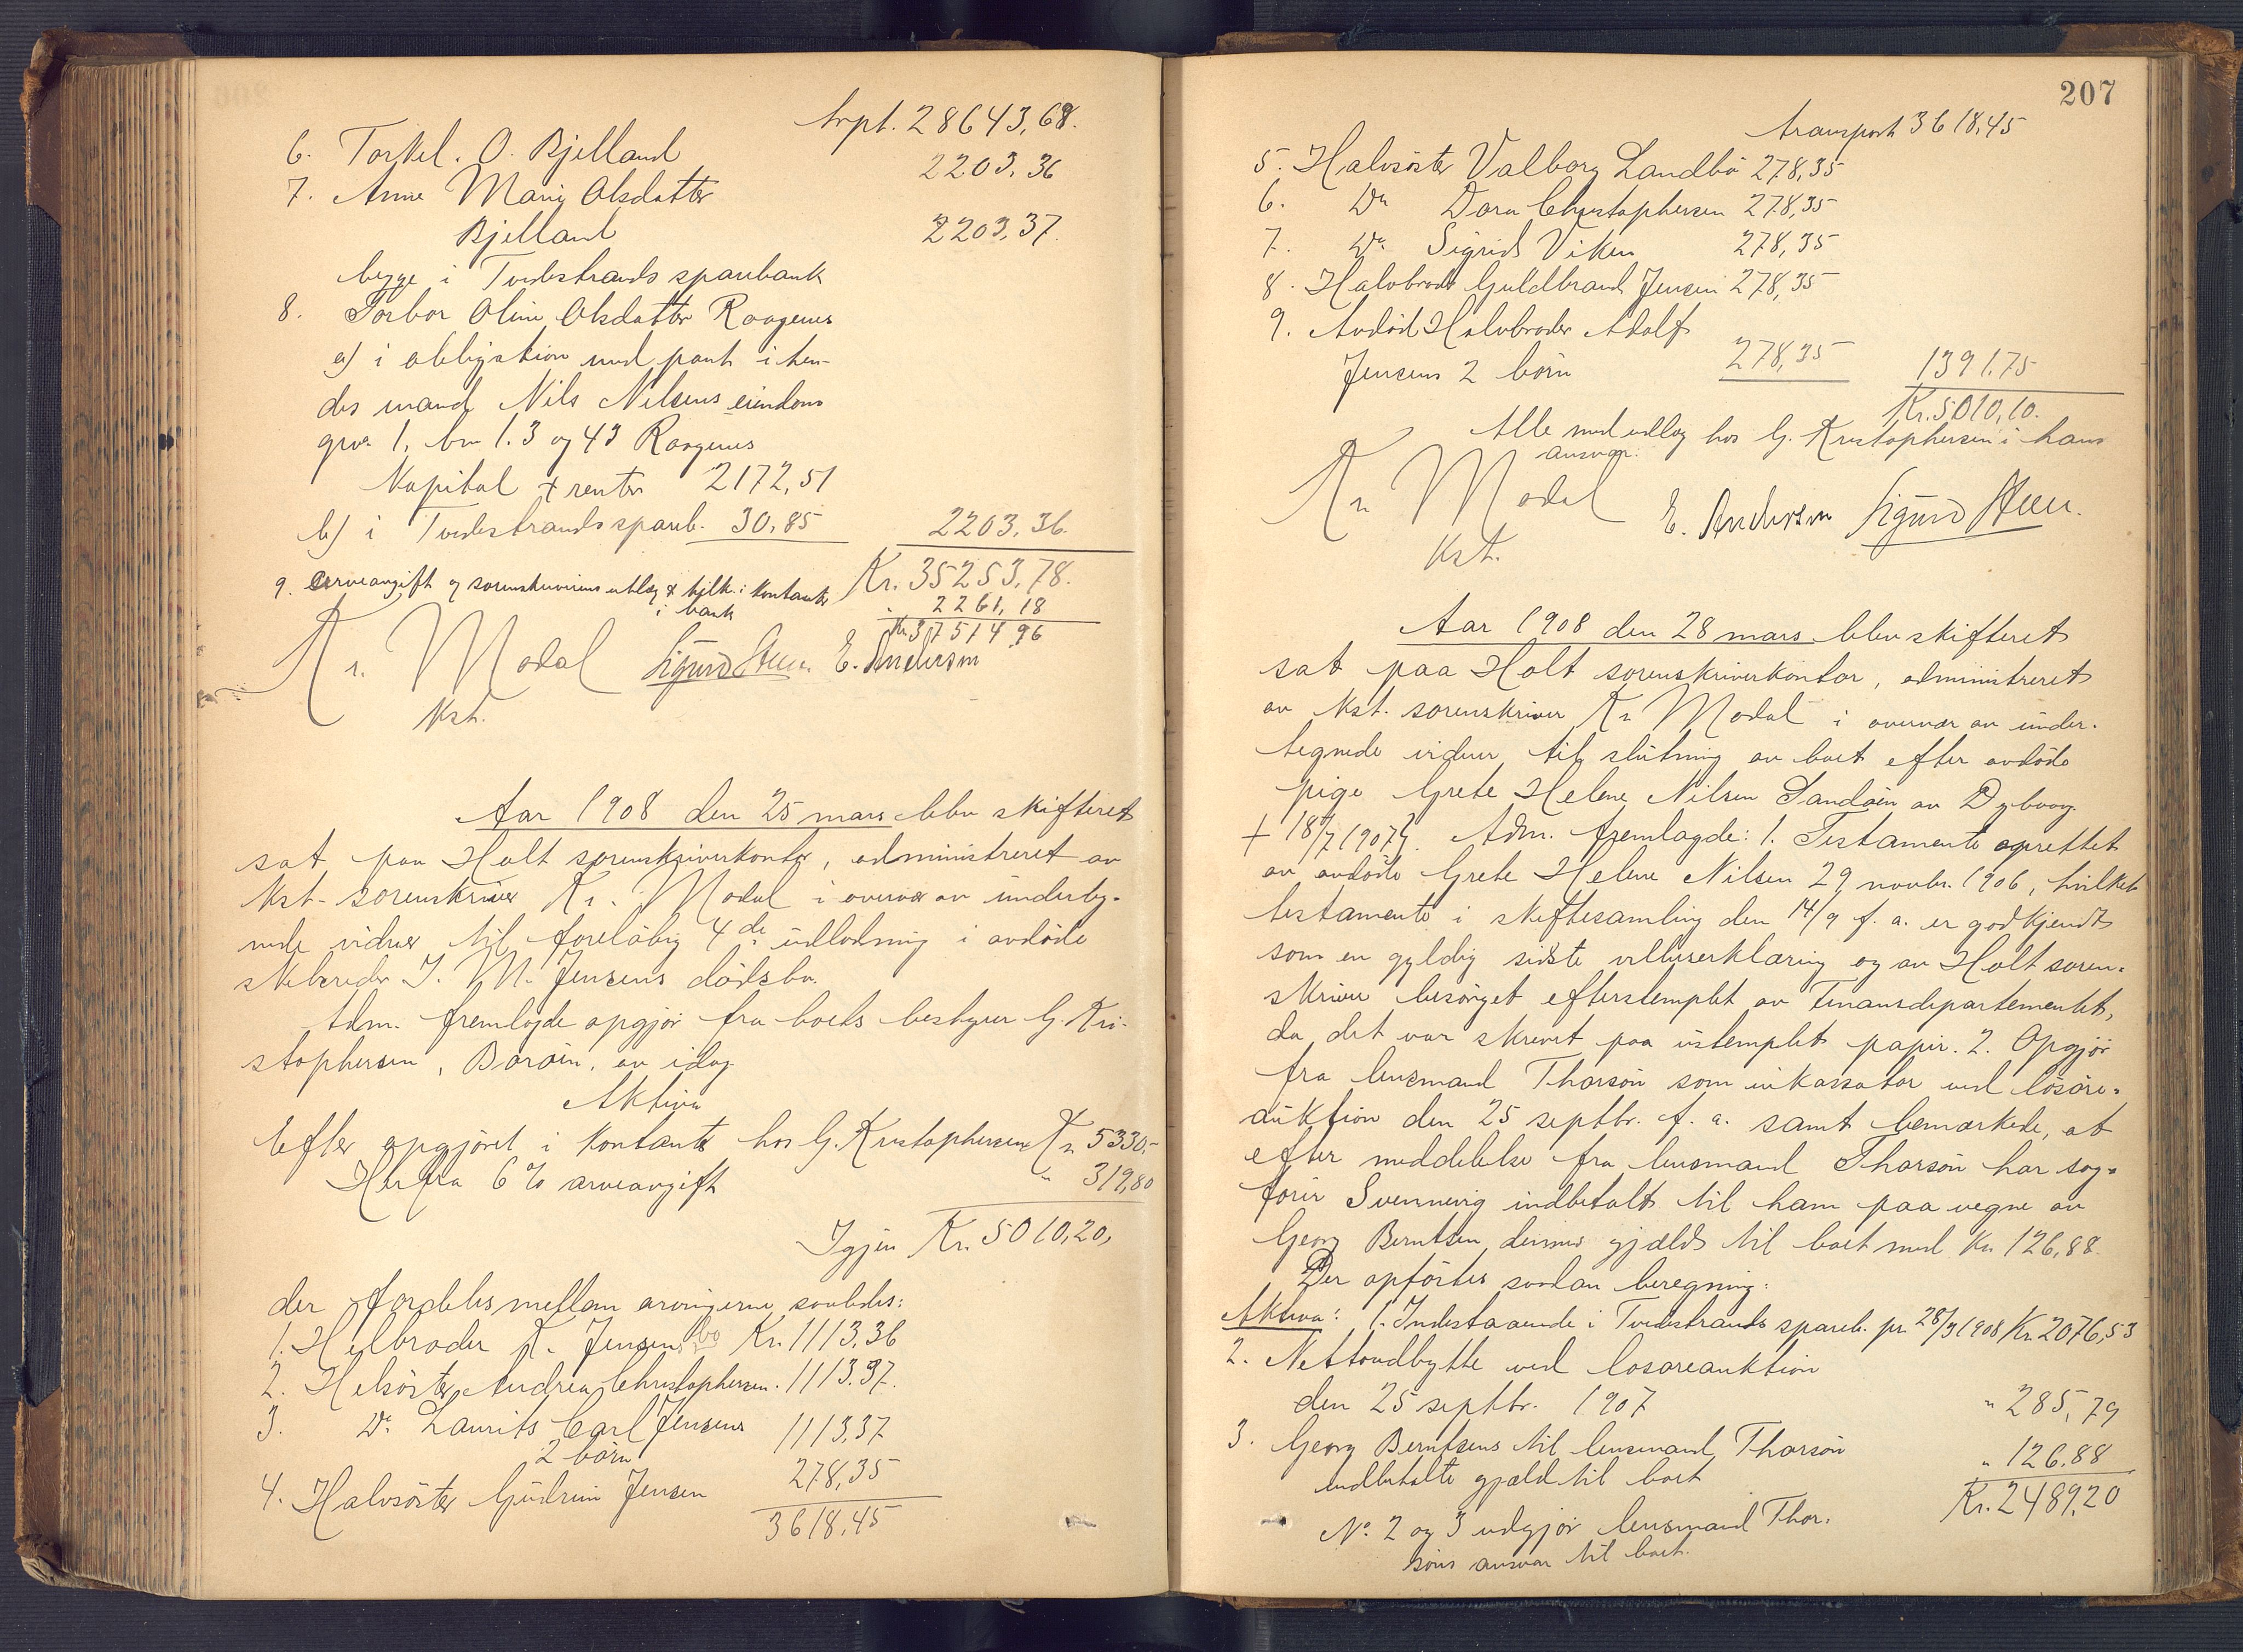 trpt. 28643,68.
6. Torkel. O. Bjelland 2203,36
7. Anne Marie Olsdatter
Bjelland 2203,37.
begge i Tvedestrands sparebank
8. Torbor Oline Olsdatter Raagenes
a) i obligation med pant i hen-
des mand Nils Nilsens eiendom
gno. 1, bn 1.3 og 43 Raagenes
Kapital + renter 2172,51
b) i Tvedestrands spareb. 30,85 2203,36.
Kr. 35253,78.
9. arveavgift og sorenskriverens utlæg + tilk. i kontanter
i bank " 2261,18
Kr. 37514,96
Kr. Modal Sigurd Steen. E. Andersen
Kst.
Aar 1908 den 25 mars blev skifteret
sat paa Holt sorenskriverkontor, administreret av
Kst. sorenskriver Kr. Modal i overvær av underteg-
nede vidner til foreløbig 4de udlodning i avdøde
skibsreder J. M. Jensens dødsbo.
Adm. fremlagde opgjør fra boets bestyrer G. Kri-
stophersen, Borøen, av idag
Aktiva
Efter opgjøret i kontanter hos G. Kristophersen Kr 5330,-
Herfra 6% arveavgift " 319,80
Igjen Kr. 5010,20,
der fordeles mellem arvingerne saaledes:
1. Helbroder K. Jensens bo Kr. 1113,36
2. Helsøster Andrea Christophersen. 1113.37.
3. Do Laurits Carl Jensens
2 børn 1113,37
4. Halvsøster Gudrun Jensen 278,35
3618,45
207
transport 3618,45
5. Halvsøster Valborg Landbø 278,35
6. Do Dora Christophersen 278,35
7. Do Sigrid Viken 278,35
8. Halvbroder Guldbrand Jensen 278,35
9. Avdød Halvbroder Adolf
Jensens 2 børn 278,35 1391.75
Kr. 5010,10.
Alle med udlæg hos G. Kristophersen i hans
ansvar.
Kr Modal E. Andersen Sigurd Steen.
Kst.
Aar 1908 den 28 mars blev skifteret
sat paa Holt sorenskriverkontor, administreret
av Kst. sorenskriver Kr Modal i overvær av under-
tegnede vidner til slutning av boet efter avdøde
pige Grete Helene Nilsen Sandøen av Dybvaag
+ 18/7 1907. Adm. fremlagde: 1. Testamente oprettet
av avdøde Grete Helene Nilsen 29 novbr. 1906, hvilket
testamente i skiftesamling den 14/9 f. a. er godkjendt
som en gyldig sidste villieserklæring og av Holt soren-
skriver besørget efterstemplet av Finansdepartementet,
da det var skrevet paa ustemplet papir. 2. Opgjør
fra lensmand Thorsøn som inkassator ved løsøre-
auktion den 25 septbr. f. a. samt bemærkede, at
efter meddelelse fra lensmand Thorsøn har sag-
fører Svennevig indbetalt til ham paa vegne av
Georg Berntsen dennes gjæld til boet med Kr 126,88.
Der opførtes saadan beregning:
Aktiva: 1. Indestaaende i Tvedestrands spareb. pr. 28/3 1908 Kr. 2076,53
2. Nettoudbytte ved løsøreauktion
den 25 septbr. 1907 " 285,79
3. Georg Berntsens til lensmand Thorsøn
indbetalte gjæld til boet " 126.88
Kr. 2489,20
No. 2 og 3 udgjør lensmand Thor-
søns ansvar til boet.